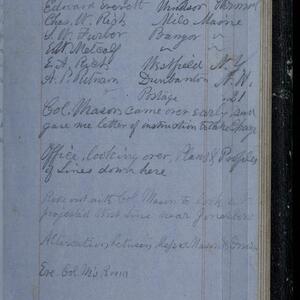 Edward Everett Windsor Vermont
Chas. W. Rich Milo Maine
J. W. Furber Bangor "
E. W. Metcalf " "
E. A. Westfield N. Y.
A. P. Putnam Dunbarton N. H.
Postage .21
Col. Mason came over early and
gave me letter of instruction to take charge
Office, looking over, Plans & Profiles
of Lines down here
Rode out with Col Mason to look at
projected West Line near
Altercation between Mason &
Eve. Col M's Room